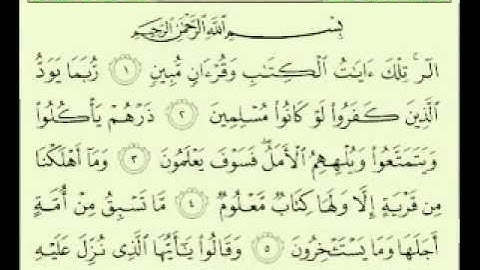 بِسْمِ ٱللَّهِ ٱلرَّحْمَٰنِ ٱلرَّحِيمِ
الٓر ۚ تِلْكَ ءَايَٰتُ ٱلْكِتَٰبِ وَقُرْءَانٍ مُّبِينٍ ١ رُّبَمَا يَوَدُّ
ٱلَّذِينَ كَفَرُوا۟ لَوْ كَانُوا۟ مُسْلِمِينَ ٢ ذَرْهُمْ يَأْكُلُوا۟
وَيَتَمَتَّعُوا۟ وَيُلْهِهِمُ ٱلْأَمَلُ ۖ فَسَوْفَ يَعْلَمُونَ ٣ وَمَآ أَهْلَكْنَا
مِن قَرْيَةٍ إِلَّا وَلَهَا كِتَابٌ مَّعْلُومٌ ٤ مَّا تَسْبِقُ مِنْ أُمَّةٍ
أَجَلَهَا وَمَا يَسْتَـْٔخِرُونَ ٥ وَقَالُوا۟ يَٰٓأَيُّهَا ٱلَّذِى نُزِّلَ عَلَيْهِ